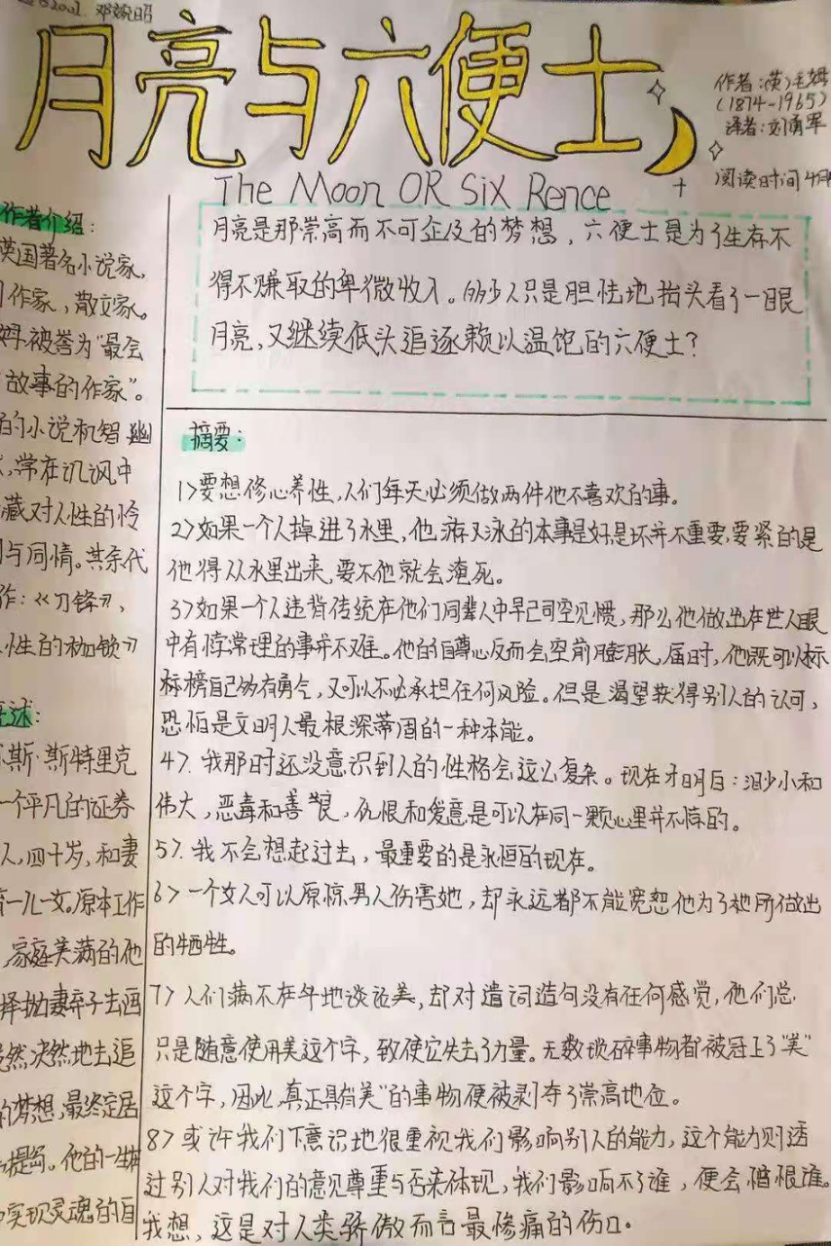 月亮与六便士
作者:(英)毛姆
(1874-1965)
译者:刘勇军
阅读时间4月
The Moon OR Six Rence
月亮是那崇高而不可企及的梦想，六便士是为了生存不
得不赚取的卑微收入。多少人只是胆怯地抬头看了一眼
月亮，又继续低头追逐赖以温饱的六便士?
作者介绍:
英国著名小说家,
作家，散文家。
姆被誉为"最会
故事的作家"。
的小说机智幽
,常在讥讽中
藏对人性的怜
与同情。其余代
作:《刀锋》、
人性的枷锁》
述:
斯·斯特里克
一个平凡的证券
人,四十岁,和妻
有一儿一女。原本工作
,家庭美满的他
择抛妻弃子去画
然决然地去追
的梦想,最终定居
提岛。他的一生
实现灵魂的自
摘要:
1>要想修心养性,人们每天必须做两件他不喜欢的事。
2>如果一个人掉进了水里,他游又泳的本事是好是坏并不重要,要紧的是
他得从水里出来,要不他就会淹死。
3>如果一个人违背传统在他们同辈人中早已司空见惯,那么他做出在世人眼
中有悖常理的事并不难。他的自尊心反而会空前膨胀。届时,他既可以标
标榜自己幼有勇气,又可以不必承担任何风险。但是渴望获得别人的认可,
恐怕是文明人最根深蒂固的一种本能。
4>.我那时还没意识到人的性格会这么复杂。现在才明白:渺小和
伟大,恶毒和善良,仇恨和爱意是可以在同一颗心里并不惊的。
5>.我不会想起过去，最重要的是永恒的现在。
6>一个女人可以原惊男人伤害她，却永远都不能宽恕他为了她所做出
的牺牲。
7>人们满不在乎地谈论美,却对遣词造句没有任何感觉,他们总
只是随意使用美这个字,致使它失去了力量。无数琐碎事物都被冠上了"美"
这个字,因此,真正具有"美"的事物便被剥夺了崇高地位。
8>或许我们下意识地很重视我们影响别人的能力,这个能力则透
过别人对我们的意见尊重与否来体现,我们影响不了谁，便会憎恨谁。
我想，这是对人类骄傲而言最惨痛的伤口.